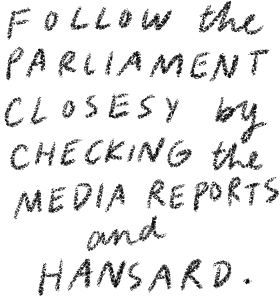 FOLLOW the
PARLIAMENT
CLOSESY by
CHECKING the
MEDIA REPORTS
and
HANSARD.